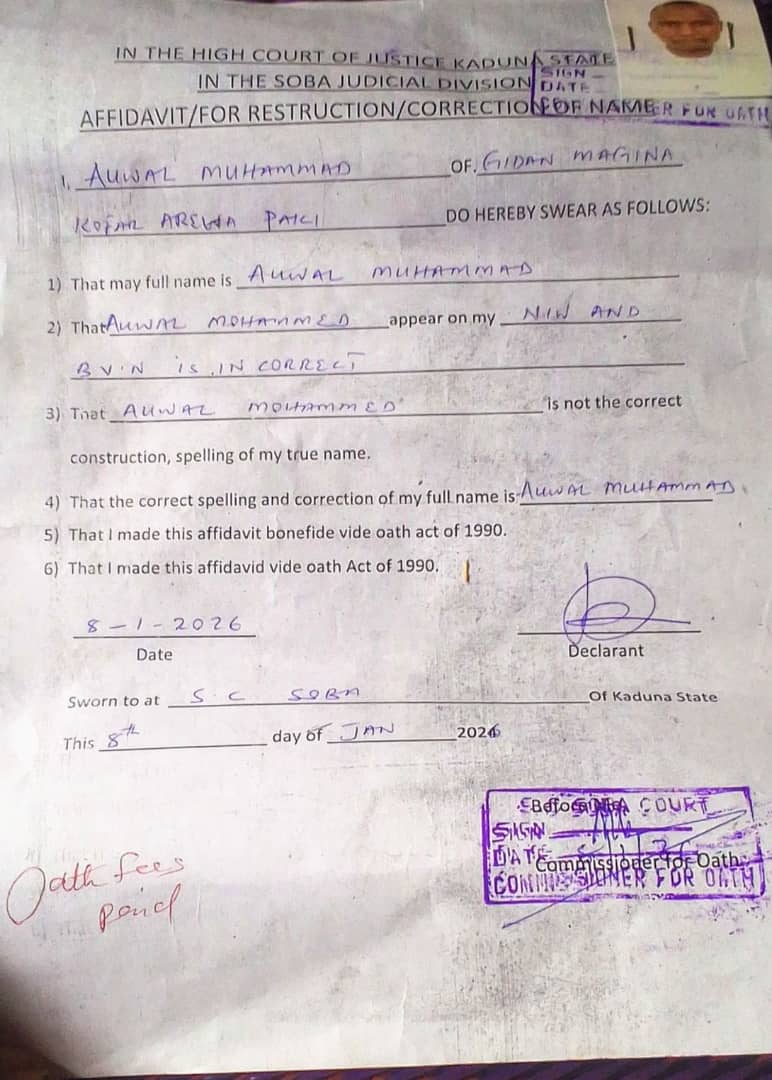 IN THE HIGH COURT OF JUSTICE KADUNA STATE
IN THE SOBA JUDICIAL DIVISION
SIGN
DATE
AFFIDAVIT/FOR RESTRUCTION/CORRECTION OF NAME
FOR OATH
I, AUWAL MUHAMMAD OF. GIDAN MAGINA
KOFAR AREWA PAKI DO HEREBY SWEAR AS FOLLOWS:
1) That may full name is AUWAL MUHAMMAD
2) That AUWAL MOHAMMED appear on my NIN AND
B V.N IS IN CORRECT
3) That AUWAL MOHAMMED is not the correct
construction, spelling of my true name.
4) That the correct spelling and correction of my full name is AUWAL MUHAMMAD
5) That I made this affidavit bonefide vide oath act of 1990.
6) That I made this affidavid vide oath Act of 1990.
8-1-2026
Date
Declarant
Sworn to at S.C SOBA Of Kaduna State
This 8th day of JAN 2026
COURT
SIGN
DATE
Commissioner for Oath
COMMISSIONER FOR OATH
Oath fees
paid